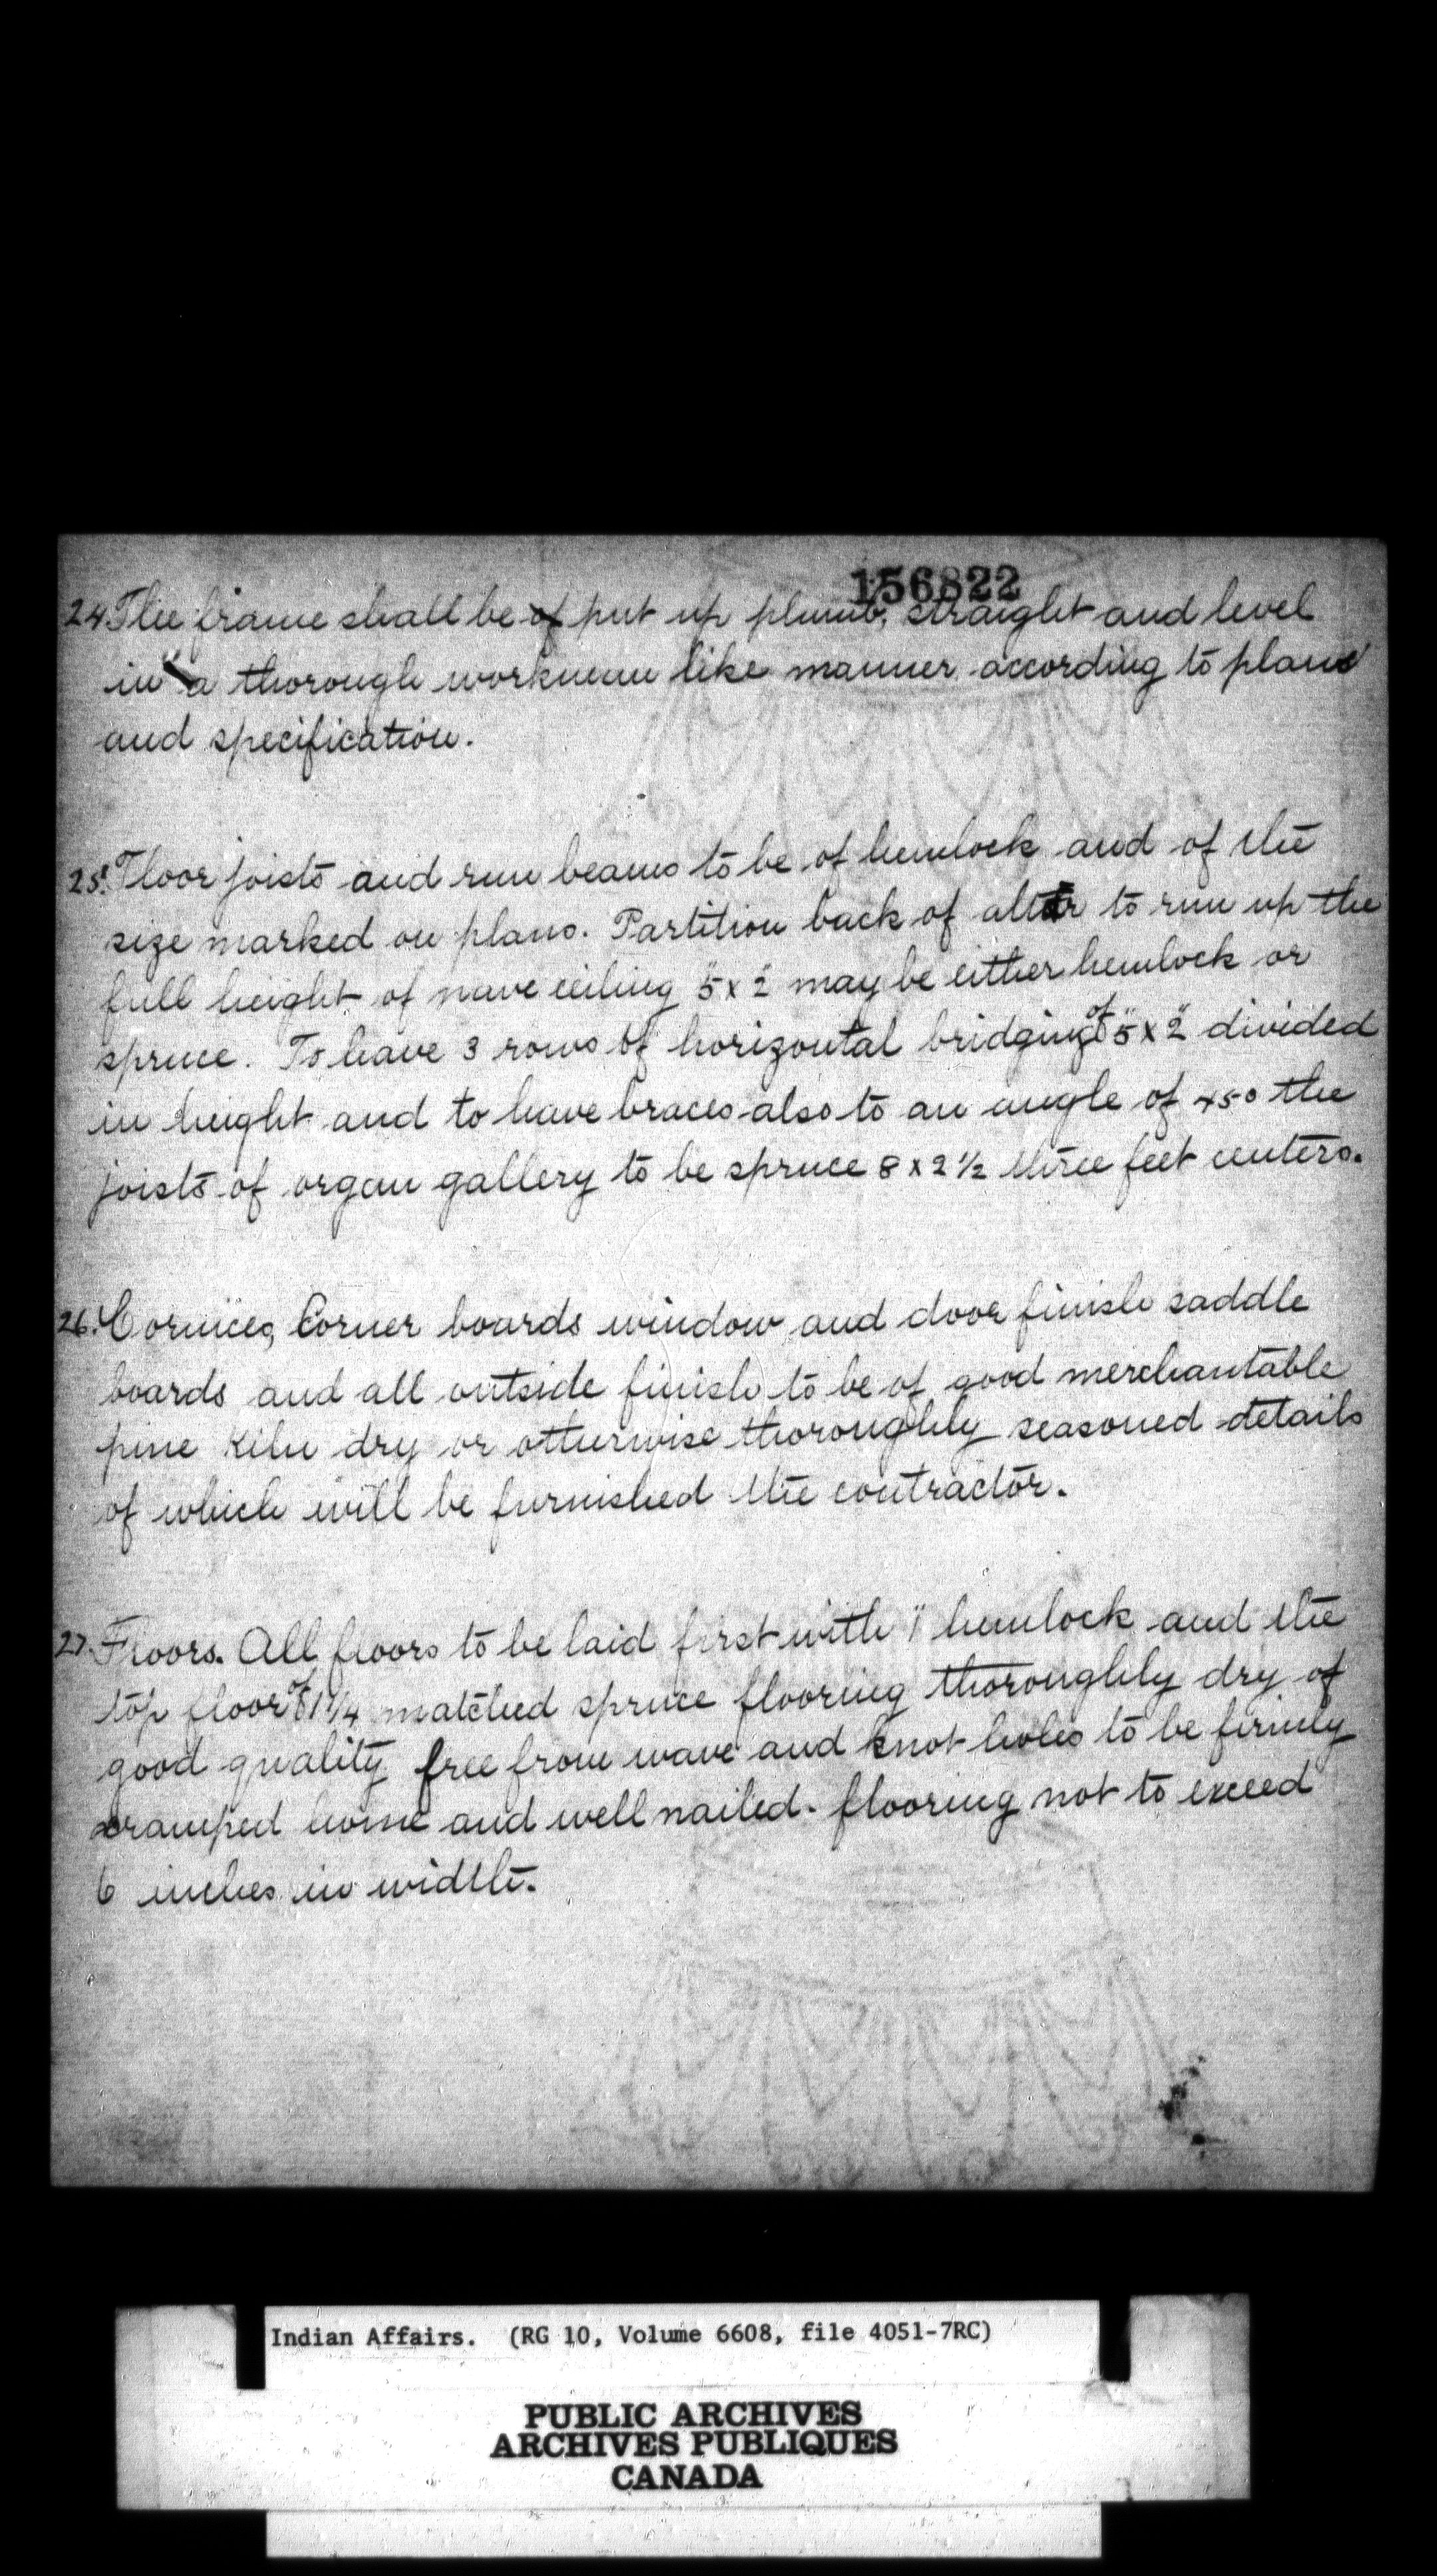 156822
24 The frame shall be of put up plumb, straight and level
in a thorough workmem like manner according to plans
and specification.
25. Floor joists and run beams to be of hemlock and of the
size marked on plans. Partition back of altar to run up the
full height of nave ceiling 5" x 2" may be either hemlock or
spruce. To have 3 rows of horizontal bridging of 5" x 2" divided
in height and to have braces also to an angle of 45° the
joists of organ gallery to be spruce 8 x 2 1/2 three feet centers.
26. Cornices, Corner boards window and door finish saddle
boards and all outside finish to be of good merchantable
pine Kiln dry or otherwise thoroughly seasoned details
of which will be furnished the contractor.
27. Floors. All floors to be laid first with 1" hemlock and the
top floor of 1 1/4 matched spruce flooring thoroughly dry of
good quality free from wave and knot holes to be firmly
cramped home and well nailed. flooring not to exceed
6 inches in width.
Indian Affairs. (RG 10, Volume 6608, file 4051-7RC)
PUBLIC ARCHIVES
ARCHIVES PUBLIQUES
CANADA